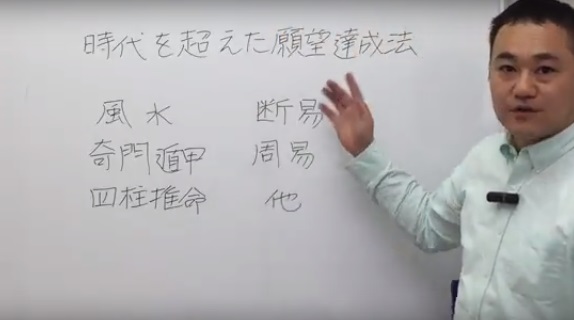 時代を超えた願望達成法
風水 断易
奇門遁甲 周易
四柱推命 他